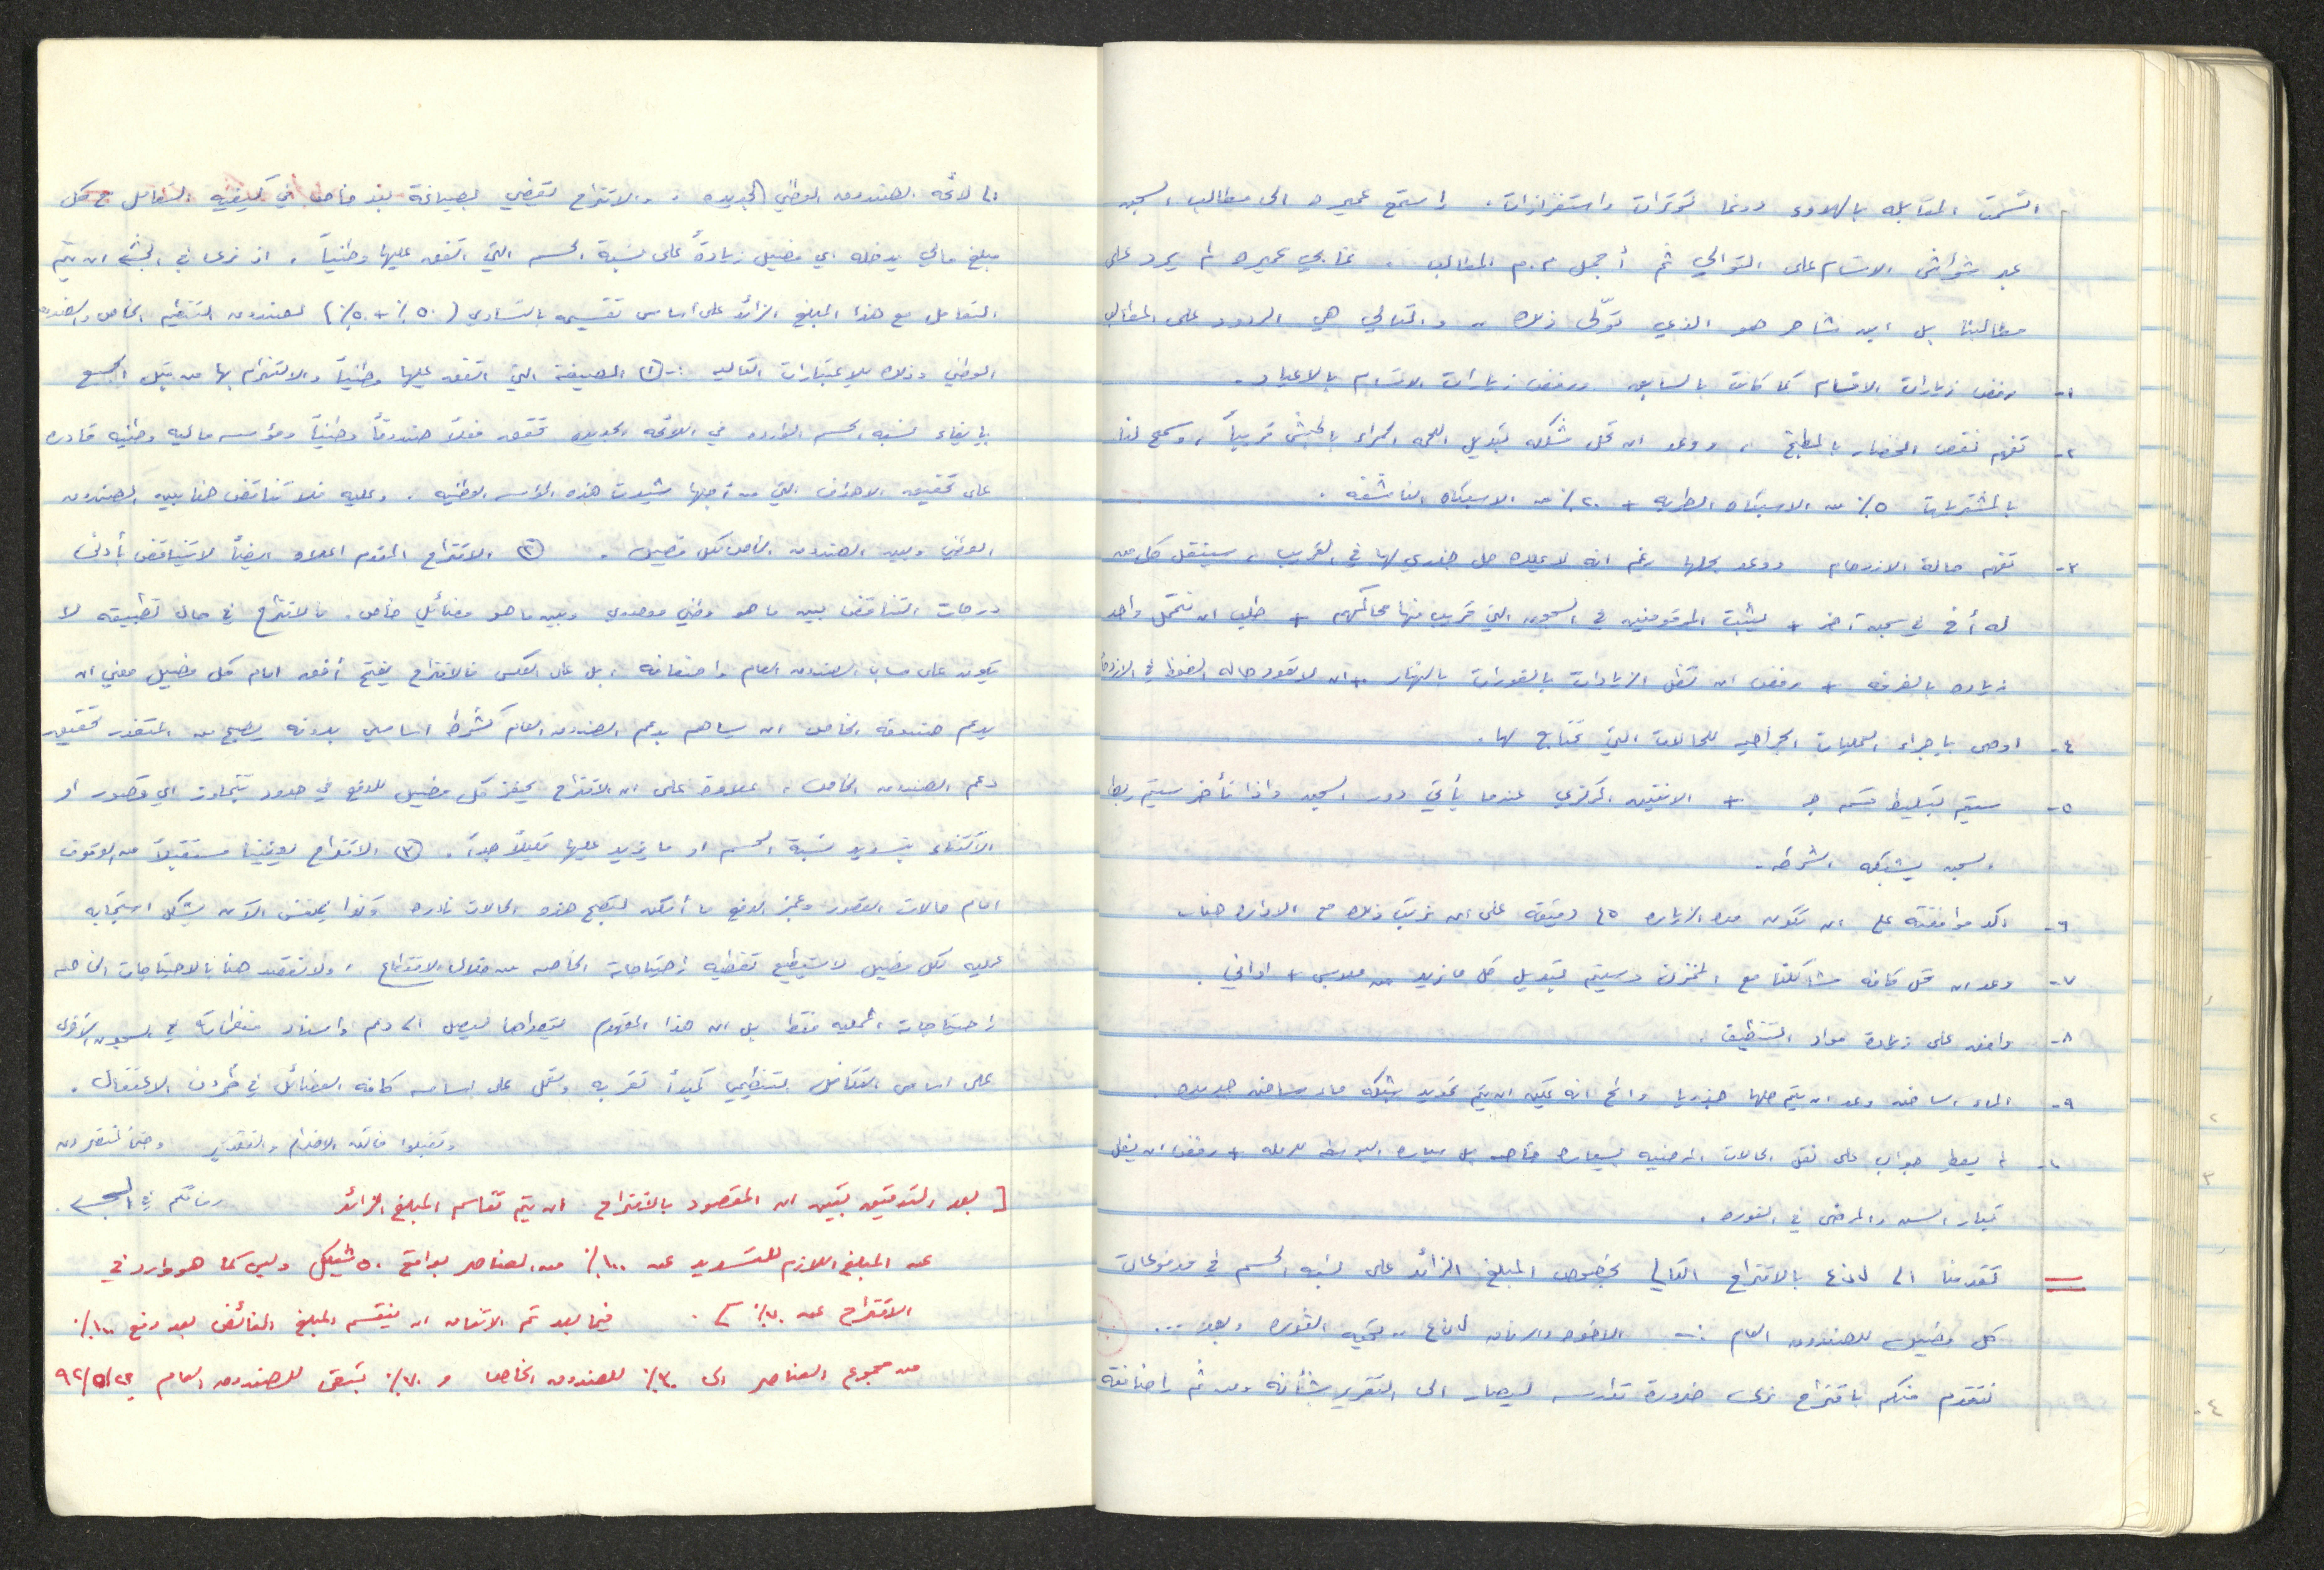 اتسمت المقابله بالهدوء دونما توترات واستفزازات. واستمع عميره الى مطالب السجن
عبر شواشي الاقسام على التوالي ثم أجمل م.م المطالب.. غابي عميره لم يرد على
مطالبنا بل ابن شاحر هو الذي تولّى ذلك.. والتالي هي الردود على المطالب
١- رفض زيارات الاقسام كما كانت بالسابق ورفض زيارات الاقسام بالاعياد.
٢- تفهم نقص الخضار بالمطبخ، ووعد ان تحل مشكلة تبديل اللحمه الحمراء بالحبش قريباً، وسمح لنا
بالمشتريات ٥٪ من الاصناف الطريه + ٢٠٪ من الاصناف الناشفه.
٣- تفهم حالة الازدحام ووعد بحلها رغم انه لا يملك حل جذري لها في القريب، سينقل كل من
له أخ في سجن آخر + يثبت الموقوفين في السجون التي قريب منها محاكمهم + طلب ان نتحمل واحد
زياده بالغرفه + رفض ان تظل الزيادات بالفورات بالنهار + ان لا تعود حاله الضغط في الازدحام
٤- اوصى باجراء العمليات الجراحيه للحالات التي تحتاج لها.
٥- سيتم تبليط قسم جـ + الانتين المركزي عندما يأتي دور السجن واذا تأخر سيتم ربط
السجن بشبكه الشرطه.
٦- اكد موافقته على ان تكون مدة الزياره ٤٥ دقيقه على ان نرتب ذلك مع الاداره هنا.
٧- وعد ان تحل كافه مشاكلنا مع المخزن وسيتم تبديل كل ما نريد من ملابس + اواني.
٨- وافق على زيادة مواد التنظيف.
٩- الماء الساخن وعد ان يتم حلها جذريا والمح انه يمكن ان يتم تمديد شبكه ماء ساخن جديده.
١٠- لم يعط جواب على نقل الحالات المرضيه بسياره خاصه بل سياره البوسطه للرمله + رفض ان يظل
كبار السن والمرضى في الفوره.
= تقدمنا الى ل.و.ع بالاقتراح التالي بخصوص المبلغ الزائد على نسبه الحسم في مدفوعات
كل فصيل للصندوق العام :- الاخوه والرفاق ل.و.ع.. تحيه الثوره وبعد ...
نتقدم منكم باقتراح نرى ضرورة تدارسه ليصار الى التقرير بشأنه ومن ثم اضافته
الى لائحه الصندوق الوطني الجديده. والاقتراح يقضي بصياغة بند خاص في كيفيه التعامل مع كل
مبلغ مالي يدخله اي فصيل زيادةً على نسبة الحسم التي اتفق عليها وطنياً، اذ نرى في الجبهة ان يتم
التعامل مع هذا المبلغ الزائد على اساس تقسيمه بالتساوي (٥٠٪ + ٥٠٪) لصندوق التنظيم الخاص والصندوق
الوطني وذلك للاعتبارات التاليه :- ① الصيغة التي اتفق عليها وطنياً والالتزام بها من قبل الجميع
بايفاء نسبه الحسم الوارده في اللائحه الجديده تحقق فعلاً صندوقاً وطنياً ومؤسسه ماليه وطنيه قادره
على تحقيق الاهداف التي من أجلها شيدت هذه المؤسسه الوطنيه. وعليه فلا تناقض هنا بين الصندوق
الوطني وبين الصندوق الخاص لكل فصيل. ② الاقتراح المقدم اعلاه ايضاً لا يتناقض بأدنى
درجات التناقض بين ما هو وطني موحدوي وبين ما هو فصائلي خاص. فالاقتراح في حال تطبيقه لا
يكون على حساب الصندوق العام واضعافه، بل على العكس فالاقتراح يفتح أفق امام كل فصيل معني ان
يدعم صندوقه الخاص ان يساهم بدعم الصندوق العام كشرط اساسي بدونه يصبح من المتعذر تحقيق
دعم الصندوق الخاص، علاوة على ان الاقتراح يحفز كل فصيل للدفع في حدود تتجاوز اي قصور او
الاكتفاء بتسديد نسبة الحسم او ما يزيد عليها قليلاً جداً. ③ الاقتراح يعفينا مستقبلاً من الوقوف
امام حالات القصور وعجز الدفع ما أمكن لتصبح هذه الحالات نادره وكذا يعني الامر يشكل استجابه
عمليه لكل فصيل لا يستطيع تغطيه احتياجاته الخاصه من خلال الاقتطاع، ولا نقصد هنا بالاحتياجات الخاصه
احتياجاته المحليه فقط بل ان هذا المفهوم يتعداها ليصل الى دعم واسناد منظماته في السجون الاخرى
على اساس التكافل التنظيمي كمبدأ تقر به وتعمل على اساسه كافه الفصائل في ظروف الاعتقال.
وتقبلوا فائق الاحترام والتقدير وحتماً لمنتصرون
رفاقكم في الجبهة.
[ بعد التدقيق تبين ان المقصود بالاقتراح ان يتم تقاسم المبلغ الزائد
عن المبلغ اللازم للتسديد عن ١٠٠٪ من العناصر بواقع ٥٠ شيكل وليس كما هو وارد في
الاقتراح عن ٧٠٪ ]. فيما بعد تم الاتفاق ان ينقسم المبلغ الفائض بعد دفع ١٠٠٪
من مجموع العناصر الى ٣٠٪ للصندوق الخاص و ٧٠٪ تبقى للصندوق العام ٩٢/٥/٢٤